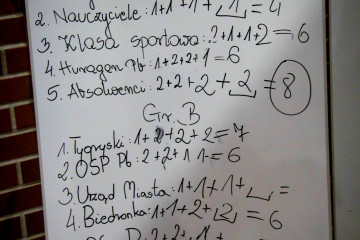 2. Nauczyciele: 1+1+1+1=4
3. Klasa sportowa: 2+1+1+2=6
4. Huragan Pb: 1+2+2+1=6
5. Absolwenci: 2+2+2+2=8
Gr. B
1. Tygryski: 1+2+2+2=7
2. OSP Pb: 2+2+1 1=6
3. Urząd Miasta: 1+1+1+ =
4. Biedronka: 1+1+2+2=6